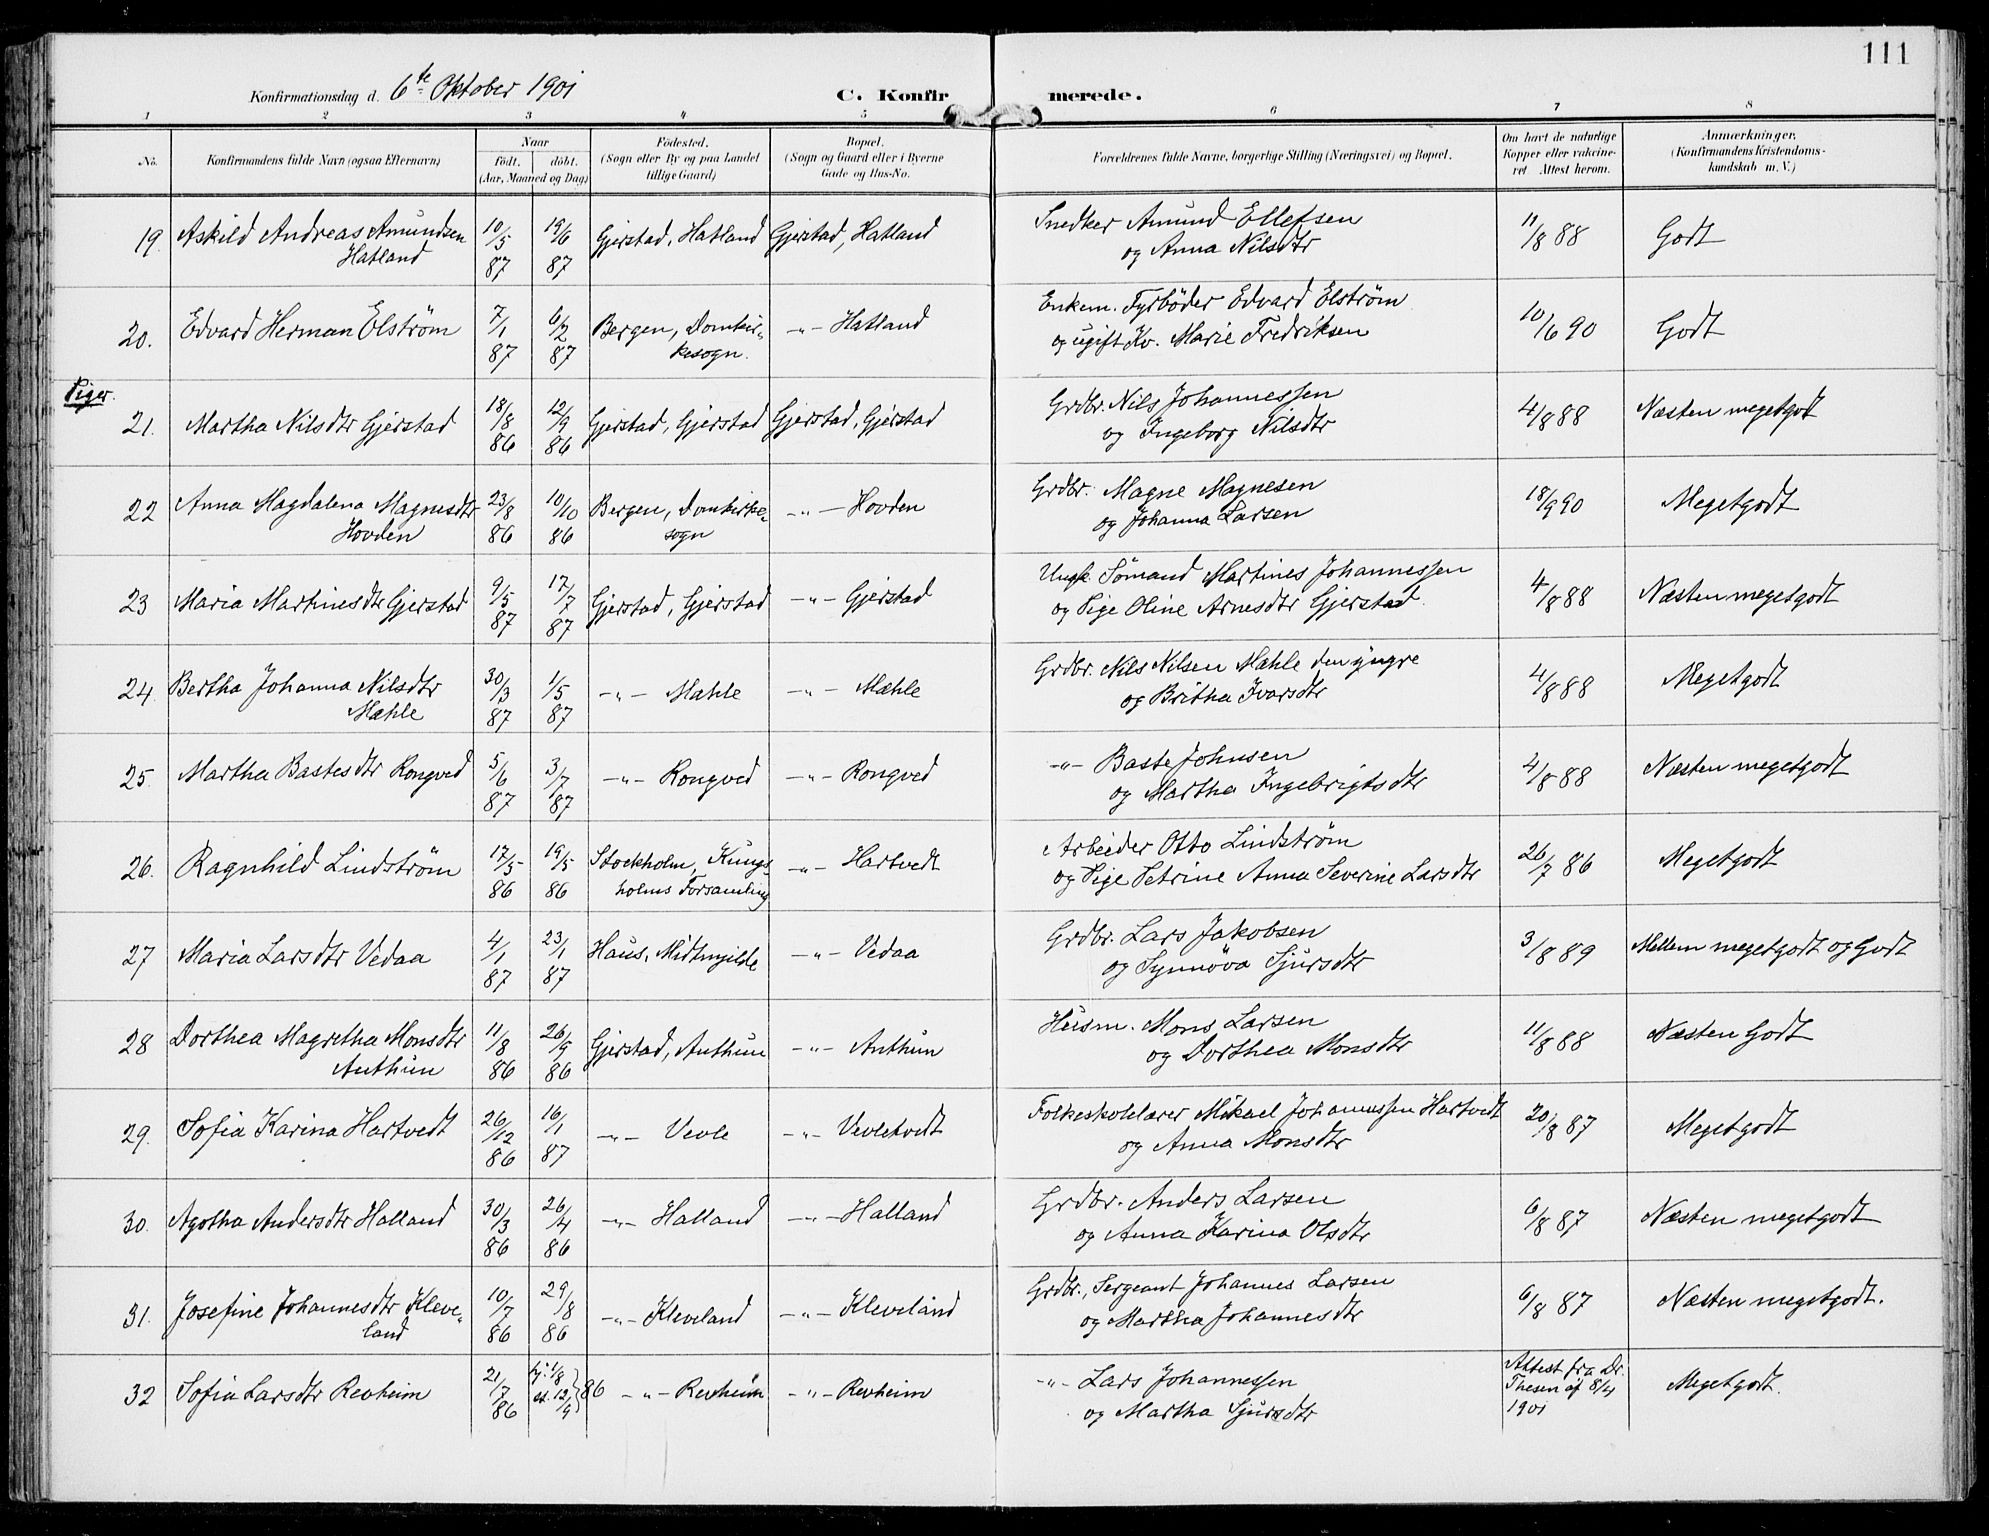 111
Konfirmationsdag d. 6te Oktober 1901
C. Konfirmerede.
1 2 3 4 5 6 7 8
No.
Konfirmandens fulde Navn (ogsaa Efternavn)
Naar
födt. döbt.
(Aar, Maaned og Dag)
Födested.
(Sogn eller By og paa Landet
tillige Gaard)
Bopæl.
(Sogn og Gaard eller i Byerne
Gade og Hus-No.
Forældrenes fulde Navne, borgerlige Stilling (Næringsvei) og Bopæl.
Om havt de naturlige
Kopper eller vakcine-
ret Attest herom.
Anmærkninger,
(Konfirmandens Kristendoms-
kundskab m. V.)
19. Askild Andreas Amundsen 10/5 87 19/6 87 Gjerstad, Hatland Gjerstad, Hatland Snedker Amund Ellefsen 11/8 88 Godt
Hatland og Anna Nilsdtr
20. Edvard Herman Elström 7/1 87 6/2 87 Bergen, Domkir- -„- Hatland Enkem. Fyrböder Edvard Elström 10/6 90 Godt
kesogn. og ugift Kv. Marie Fredriksen
Piger.
21. Martha Nilsdtr Gjerstad 18/8 86 12/9 86 Gjerstad, Gjerstad Gjerstad, Gjerstad Grdbr. Nils Johannessen 4/8 88 Næsten megetgodt
og Ingeborg Nilsdtr
22 Anna Magdalena Magnesdtr 23/8 86 10/10 86 Bergen, Domkirke- -„- Hovden Grdbr. Magne Magnesen 18/9 90 Megetgodt
Hovden sogn og Johanna Larsen
23 Maria Martinesdtr Gjerstad 9/5 87 17/7 87 Gjerstad, Gjerstad -„- Gjerstad Ungk. Sömand Martines Johannessen 4/8 88 Næsten megetgodt
og Pige Oline Arnesdtr Gjerstad.
24. Bertha Johanna Nilsdtr 30/3 87 1/5 87 -„- Mæhle -„- Mæhle Grdbr. Nils Nilsen Mæhle den yngre 4/8 88 Megetgodt
Mæhle og Britha Ivarsdtr
25. Martha Bastesdtr Rongved 5/6 87 3/7 87 -„- Rongved -„- Rongved -„- Baste Johnsen 4/8 88 Næsten megetgodt
og Martha Ingebrigtsdtr
26. Ragnhild Lindström 17/5 86 19/5 86 Stockholm, Kungs- -„- Hartvedt Arbeider Otto Lindström 26/7 86 Megetgodt
holms Forsamling og Pige Petrine Anna Severine Larsdtr
27 Maria Larsdtr Vedaa 4/1 87 23/1 87 Haus, Midtmjilde -„- Vedaa Grdbr. Lars Jakobsen 3/8 89 Mellem megetgodt og Godt
og Synnöva Sjursdtr
28 Dorthea Magretha Monsdtr 11/8 86 26/9 86 Gjerstad, Anthun -„- Anthun Husm. Mons Larsen 11/8 88 Næsten Godt
Anthun og Dorthea Monsdtr
29. Sofia Karina Hartvedt 26/12 86 16/1 87 -„- Vevle -„- Vevletvedt Folkeskolelærer Mikael Johannessen Hartvedt 20/8 87 Megetgodt
og Anna Monsdtr
30. Agotha Andersdtr Halland 30/3 86 26/4 86 -„- Halland -„- Halland Grdbr. Anders Larsen 6/8 87 Næsten megetgodt
og Anna Karina Olsdtr
31. Josefine Johannesdtr Kleve- 10/7 86 29/8 86 -„- Kleveland -„- Kleveland Grdbr., Sergeant Johannes Larsen 6/8 87 Næsten megetgodt.
land og Martha Johannesdtr
32 Sofia Larsdtr Revheim 21/7 86 hj. 1/8 st. 12/9 86 -„- Revheim -„- Revheim -„- Lars Johannessen Attest fra Dr. Thesen af 8/4 1901 Megetgodt.
og Martha Sjursdtr